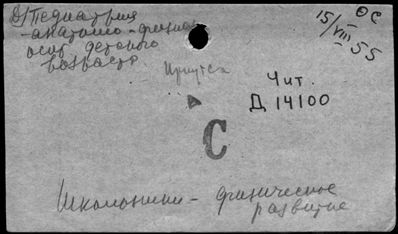 Педиатрия
-анатомо-физиол
особ детского
возраста
ОС
15/VIII 55
Иркутск
Чит.
Д 14100
С
Школьники - физическое
развитие